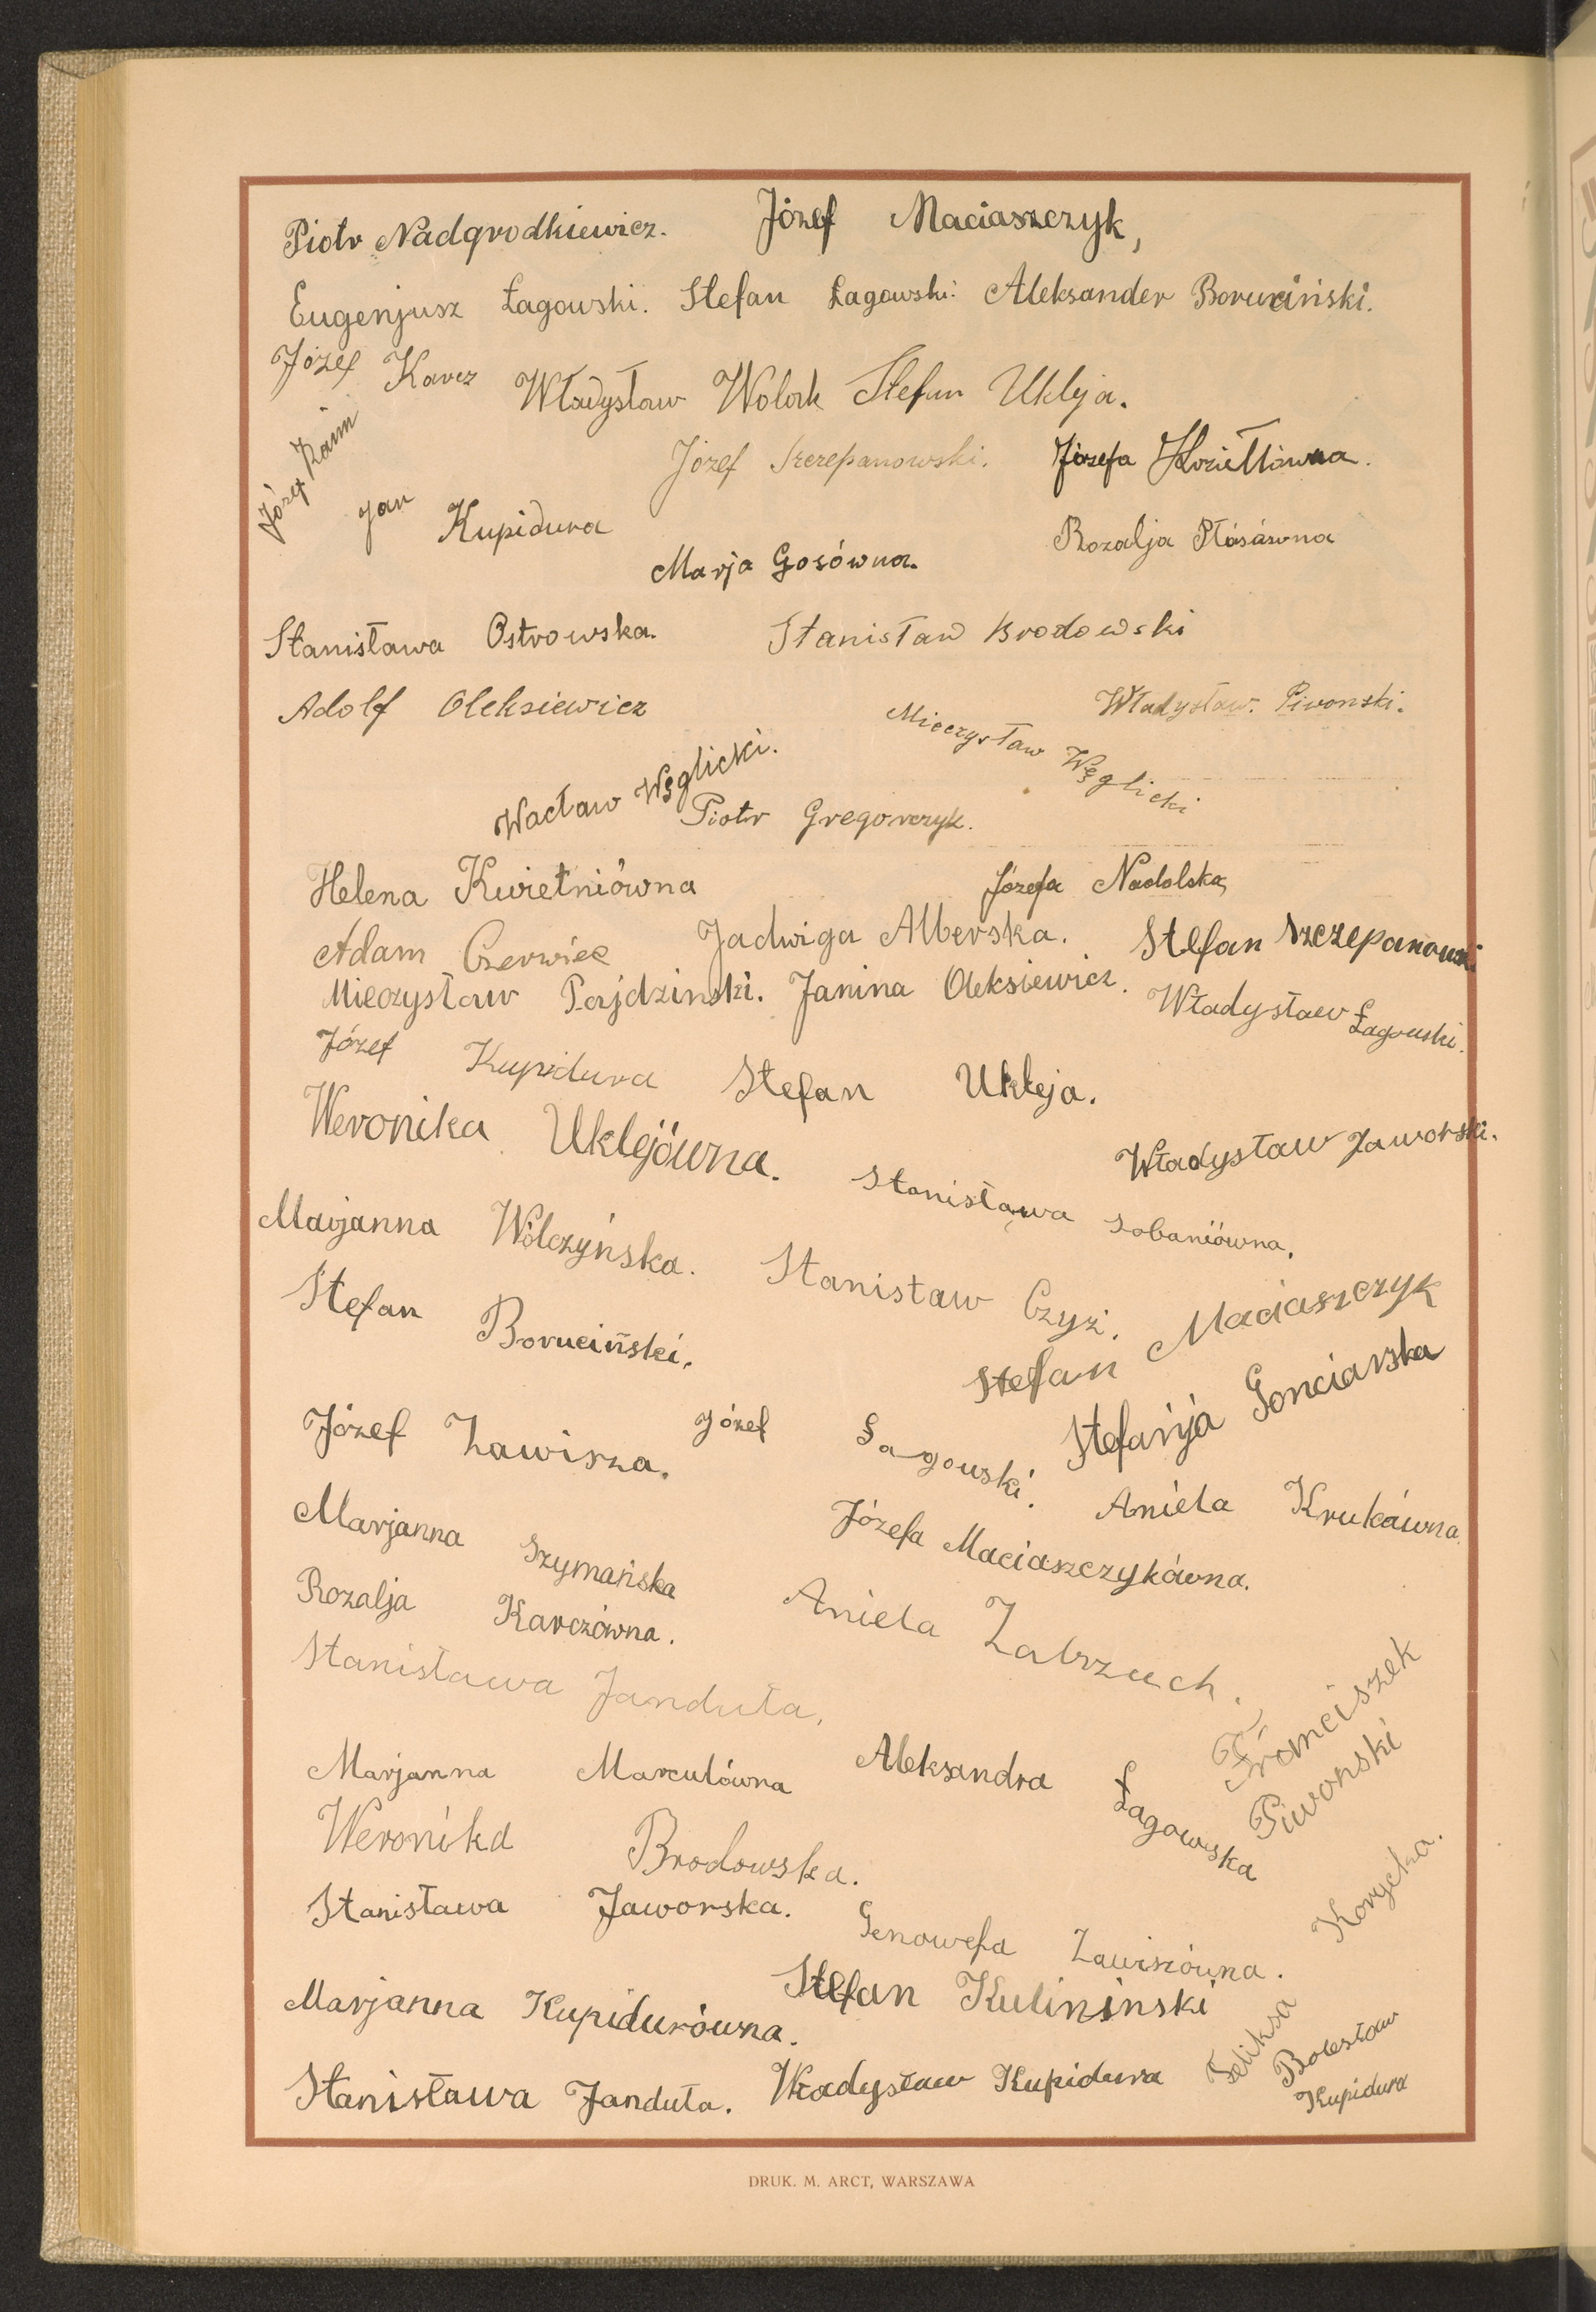 Piotr Nadgrodkiewicz. Józef Maciaszczyk,
Eugenjusz Łagowski. Stefan Łagowski. Aleksander Boruciński.
Józef Karcz Władysław Wolak Stefan Ukleja.
Józef Raim
Józef Szczepanowski. Józefa Koziełłówna.
Jan Kupidura
Marja Gosówna. Rozalja Płósówna
Stanisława Ostrowska. Stanisław Brodowski
Adolf Oleksiewicz
Mieczysław Węglicki
Władysław. Piwonski.
Wacław Węglicki.
Piotr Gregorczyk.
Helena Kwietniówna Józefa Nadolska,
Adam Czerwiec Jadwiga Alberska. Stefan Szczepanowski
Mieczysław Pajdzinski. Janina Oleksiewicz. Władysław Łagowski.
Józef Kupidura Stefan Ukleja.
Weronika Uklejówna. Władysław Jaworski.
Stanisława Sobaniówna.
Marjanna Wólczyńska. Stanisław Czyż.
Stefan Boruciński. Stefan Maciaszczyk
Józef Zawisza. Józef Łagowski. Stefanja Gonciarska
Aniela Krukówna.
Marjanna Szymańska Józefa Maciaszczykówna.
Rozalja Karczówna. Aniela Zabrzuch.
Stanisława Janduła.
Franciszek Piwonski
Marjanna Marculówna Aleksandra Łagowska
Weronika Brodowska.
Stanisława Jaworska. Genowefa Zawiszówna.
Feliksa Korycka.
Marjanna Kupidurówna. Stefan Kulininski
Stanisława Janduła. Władysław Kupidura Bolesław Kupidura
DRUK. M. ARCT, WARSZAWA